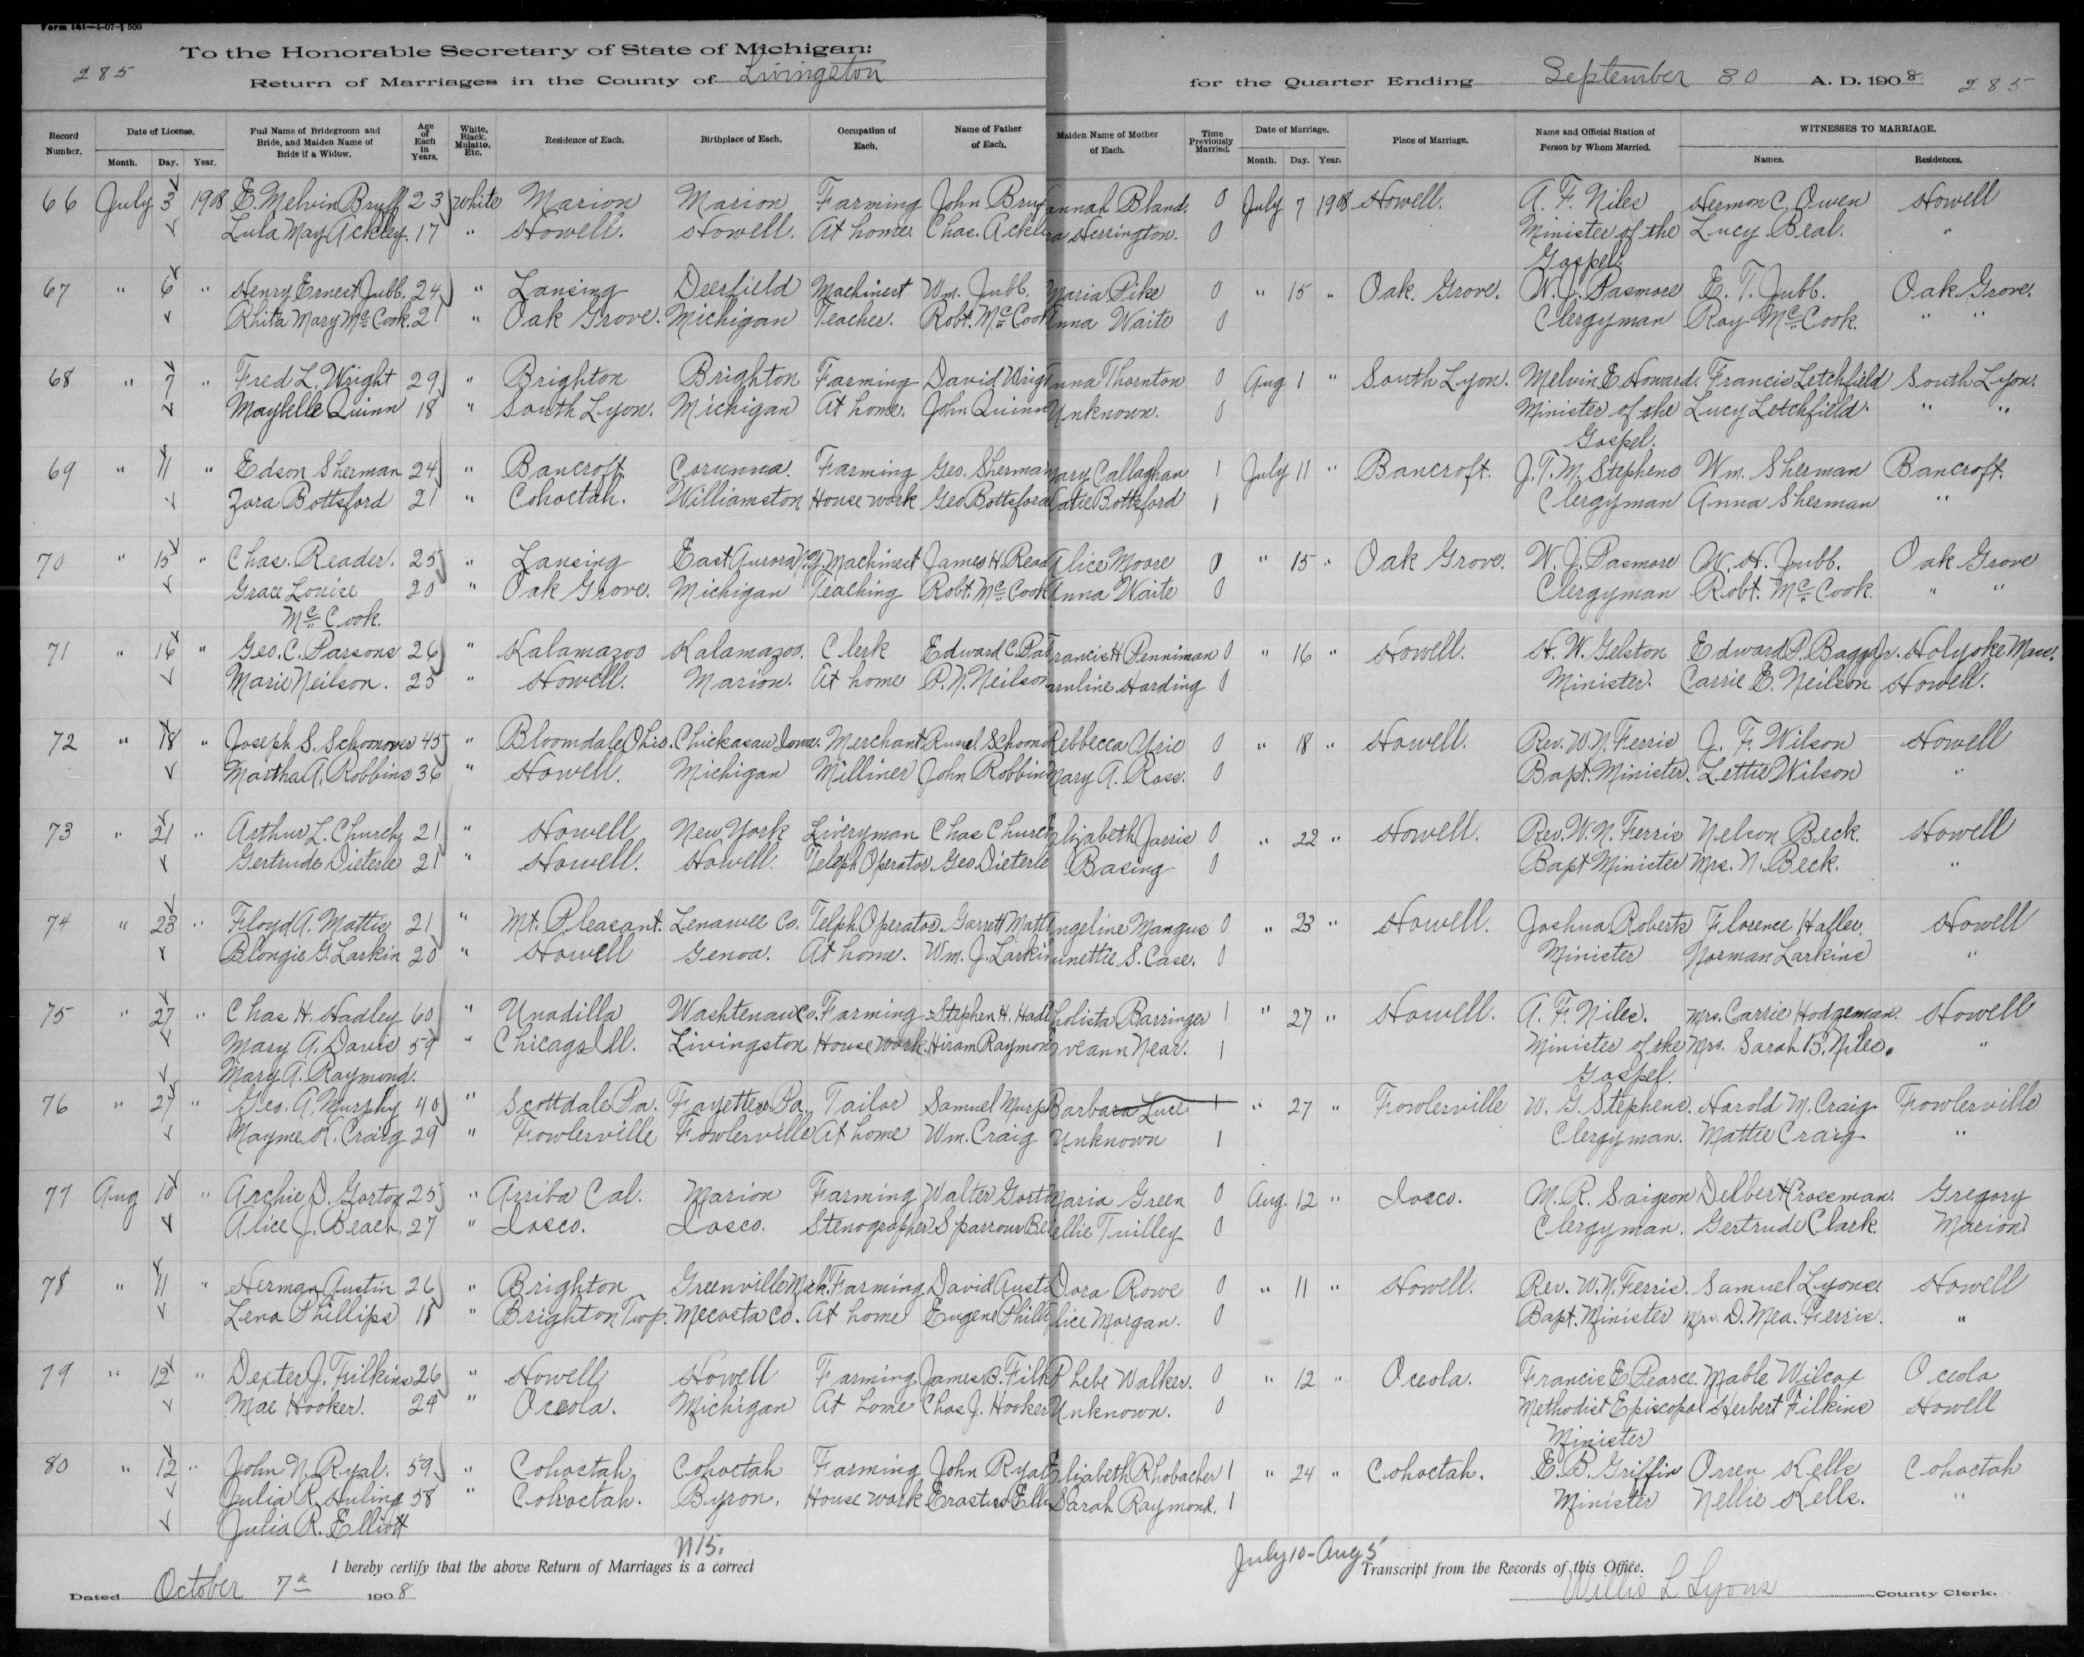 Form 141—4-07- 500
To the Honorable Secretary of State of Michigan:
285 Return of Marriages in the County of Livingston for the Quarter Ending September 30 A. D. 1908 285
Record Number. Date of License. Month. Day. Year. Full Name of Bridegroom and Bride, and Maiden Name of Bride if a Widow. Age of Each in Years. White, Black, Mulatto, Etc. Residence of Each. Birthplace of Each. Occupation of Each. Name of Father of Each. Maiden Name of Mother of Each. Time Previously Married. Date of Marriage. Month. Day. Year. Place of Marriage. Name and Official Station of Person by Whom Married. WITNESSES TO MARRIAGE. Names. Residences.
66 July 3 1908 E. Melvin Bruff 23 White Marion Marion Farming John Bruf annah Bland. 0 July 7 1908 Howell. A. F. Niles Hermon C. Owen Howell
Lula May Ackley. 17 " Howell. Howell. At home Chas. Ackl ra Herrington. 0 Minister of the Lucy Beal. "
Gospel.
67 " 6 " Henry Ernest Jubb. 24 " Lansing Deerfield Machinest Wm. Jubb. Maria Pike 0 " 15 " Oak Grove. W. J. Pasmore E. T. Jubb. Oak Grove.
Rhita Mary McCook. 21 " Oak Grove. Michigan Teacher. Robt. McCook Anna Waite 0 Clergyman Ray McCook. " "
68 " 7 " Fred L. Wright 29 " Brighton Brighton Farming David Wrigh Anna Thornton 0 Aug 1 " South Lyon. Melvin E Howard. Francis Letchfield South Lyon.
Maybelle Quinn 18 " South Lyon. Michigan At home. John Quinn Unknown. 0 Minister of the Lucy Letchfield. " "
Gospel.
69 " 11 " Edson Sherman 24 " Bancroft Corunna. Farming Geo. Sherman Mary Callaghan 1 July 11 " Bancroft. J. T. M. Stephens Wm. Sherman Bancroft.
Zora Bottsford 21 " Cohoctah. Williamston House work Geo Bottsford Katie Bottsford 1 Clergyman Anna Sherman "
70 " 15 " Chas. Reader. 25 " Lansing East Aurora N.Y. Machinest James H. Read Alice Moore 0 " 15 " Oak Grove. W. J. Pasmore W. H. Jubb. Oak Grove
Grace Louise 20 " Oak Grove. Michigan Teaching Robt. McCook Anna Waite 0 Clergyman Robt. McCook. " "
McCook.
71 " 16 " Geo. C. Parsons 26 " Kalamazoo Kalamazoo. Clerk Edward C. Pa Francis H Penniman 0 " 16 " Howell. H. W. Gelston Edward P. Bagg Jr. Holyoke Mass.
Marie Neilson. 25 " Howell. Marion. At home P. N. Neilson Harding 0 Minister. Carrie E. Neilson Howell.
72 " 18 " Joseph S. Schoonover 45 " Bloomdale, Ohio. Chickasaw, Iowa. Merchant Russel Schoono Rebbecca Usie 0 " 18 " Howell. Rev. W. N. Ferris J. F. Wilson Howell
Martha A. Robbins 36 " Howell. Michigan Milliner John Robbin Mary A. Ross. 0 Bapt. Minister. Lettie Wilson "
73 " 21 " Arthur L. Church 21 " Howell New York Liveryman Chas Church Elizabeth Jarris 0 " 22 " Howell. Rev. W. N. Ferris Nelson Beck. Howell
Gertrude Dieterle 21 " Howell. Howell. Teleph Operator. Geo. Dieterle Basing 0 Bapt Minister Mrs. N. Beck. "
74 " 23 " Floyd A. Mattis 21 " Mt. Pleasant. Lenawee Co. Telph Operator. Garrett Matt Angeline Mangus 0 " 23 " Howell. Joshua Roberts Florence Hafler. Howell
Blongie G. Larkin 20 " Howell Genoa. At home. Wm. J. Larkin nnettie S. Case. 0 Minister Norman Larkins "
75 " 27 " Chas H. Hadley 60 " Unadilla Washtenaw Co. Farming Stephen H. Hadl holista Barringer 1 " 27 " Howell. A. F. Niles. Mrs. Carrie Hodgeman. Howell
Mary A. Davis 59 " Chicago Ill. Livingston House Work. Hiram Raymon veann Near. 1 Minister of the Mrs. Sarah B. Niles. "
Mary A. Raymond. Gospel.
76 " 27 " Geo. A. Murphy 40 " Scottdale Pa. Fayette Co Pa. Tailor Samuel Murp Barbara Luce 1 " 27 " Fowlerville W. G. Stephens. Harold M. Craig Fowlerville
Mayme K. Craig 29 " Fowlerville Fowlerville At home Wm. Craig Unknown 1 Clergyman. Mattie Craig "
77 Aug 10 " Archie D. Gorton 25 " Arriba Cal. Marion Farming Walter Gorto Maria Green 0 Aug 12 " Iosco. M. R. Saigeon Delbert Crossman. Gregory
Alice J. Beach. 27 " Iosco. Iosco. Stenographer Sparrow Be ellie Tuilley 0 Clergyman. Gertrude Clark Marion
78 " 11 " Herman Austin 26 " Brighton Greenville Mich. Farming David Aust Dora Rowe 0 " 11 " Howell. Rev. W. N. Ferris. Samuel Lyons Howell
Lena Phillips 18 " Brighton Twp. Mecosta Co. At home Eugene Philli Alice Morgan. 0 Bapt. Minister Mrs. D. Mea. Ferris. "
79 " 12 " Dexter J. Filkins 26 " Howell Howell Farming James B. Filk Phebe Walker. 0 " 12 " Oceola. Francis E Pearce. Mable Wilcox Oceola
Mae Hooker. 29 " Oceola. Michigan At home Chas J. Hooker Unknown. 0 Methodist Episcopal Herbert Filkins Howell
Minister
80 " 12 " John N. Ryal. 59 " Cohoctah Cohoctah Farming John Ryal Elizabeth Rhobacher 1 " 24 " Cohoctah. E. B. Griffin Orren Kells Cohoctah
Julia R. Huling 58 " Cohoctah. Byron. House work Erastus Elli Sarah Raymond. 1 Minister Nellie Kells. "
Julia R. Elliott
N15. July 10 - Aug 5
I hereby certify that the above Return of Marriages is a correct Transcript from the Records of this Office.
Dated October 7th 1908 Willis L Lyons County Clerk.